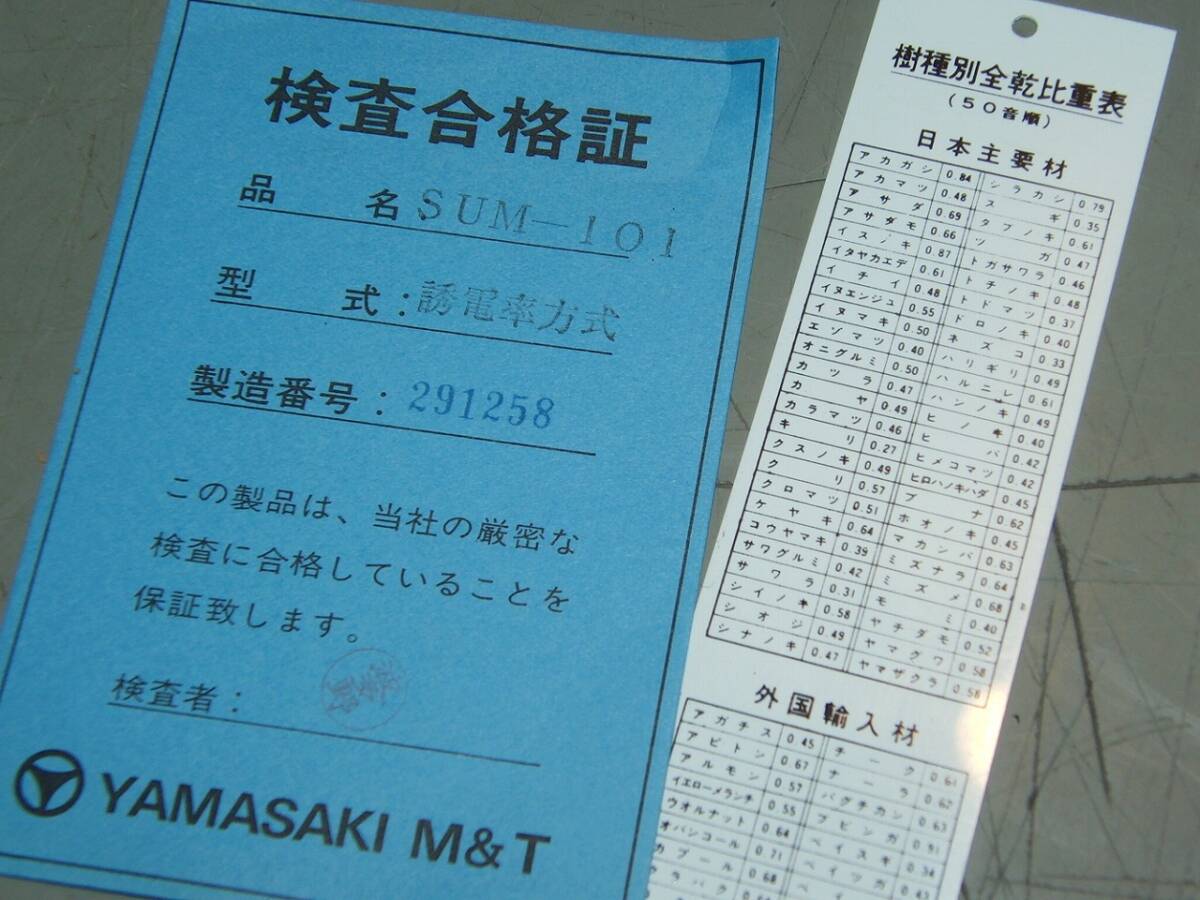 検査合格証
品名 SUM-101
型式：誘電率方式
製造番号：291258
この製品は、当社の厳密な
検査に合格していることを
保証致します。
検査者：
YAMASAKI M&T
樹種別全乾比重表
(50音順)
日本主要材
アカガシ 0.84 シラカシ 0.79
アカマツ 0.48 スギ 0.35
アサダ 0.69 タブノキ 0.61
アサダモ 0.66 ツガ 0.47
イスノキ 0.87 トガサワラ 0.46
イタヤカエデ 0.61 トチノキ 0.48
イチイ 0.48 トドマツ 0.37
イヌエンジュ 0.55 ドロノキ 0.40
イヌマキ 0.50 ネズコ 0.33
エゾマツ 0.40 ハリギリ 0.49
オニグルミ 0.50 ハルニレ 0.61
カツラ 0.47 ハンノキ 0.49
カヤ 0.49 ヒノキ 0.40
カラマツ 0.46 ヒバ 0.42
キリ 0.27 ヒメコマツ 0.42
クスノキ 0.49 ヒロハノキハダ 0.45
クリ 0.57 ブナ 0.62
クロマツ 0.51 ホオノキ 0.45
ケヤキ 0.64 マカンバ 0.63
コウヤマキ 0.39 ミズナラ 0.64
サワグルミ 0.42 ミズメ 0.68
サワラ 0.31 モミ 0.40
シイノキ 0.58 ヤチダモ 0.52
シオジ 0.49 ヤマグワ 0.58
シナノキ 0.47 ヤマザクラ 0.58
外国輸入材
アガチス 0.45 チーク 0.61
アピトン 0.67 ナーラ 0.62
アルモン 0.57 バクチカン 0.63
イエローメランチ 0.55 ブビンガ 0.91
ウオルナット 0.64 ベイスギ 0.34
オバンコール 0.71 ベイツガ 0.43
カプール 0.68